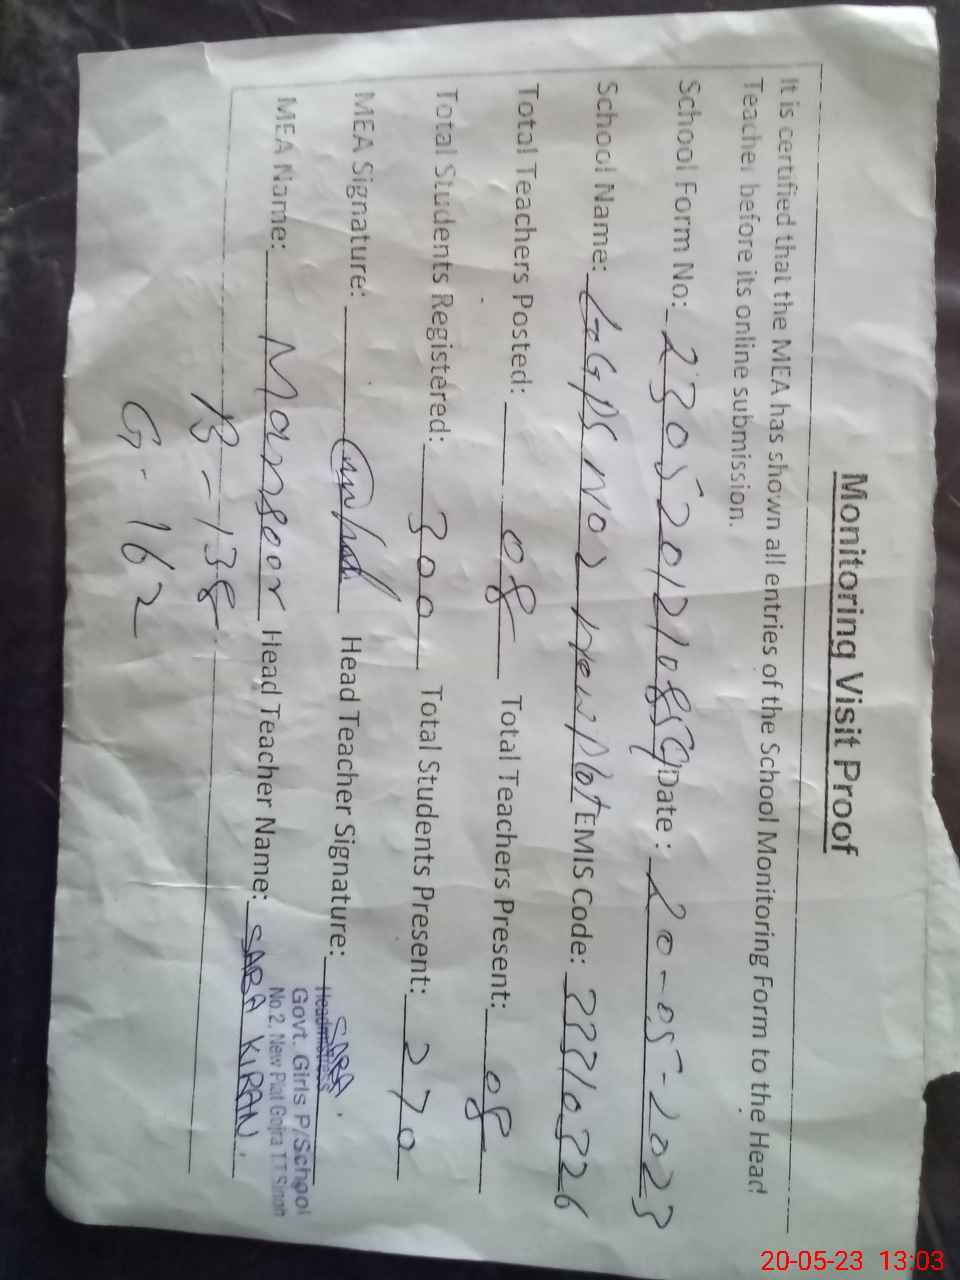 Monitoring Visit Proof
It is certified that the MEA has shown all entries of the School Monitoring Form to the Head
Teacher before its online submission.
School Form No: 2305201210859 Date : 20-05-2023
School Name: GGPS NO2 New Plot EMIS Code: 33310326
Total Teachers Posted: 08 Total Teachers Present: 08
Total Students Registered: 300 Total Students Present: 270
MEA Signature: Head Teacher Signature: SABA
Headmistress
Govt. Girls P/School
No.2, New Plat Gojra TT Singh
MEA Name: Manseor Head Teacher Name: SABA KIRAN
B-138
G-162
20-05-23 13:03